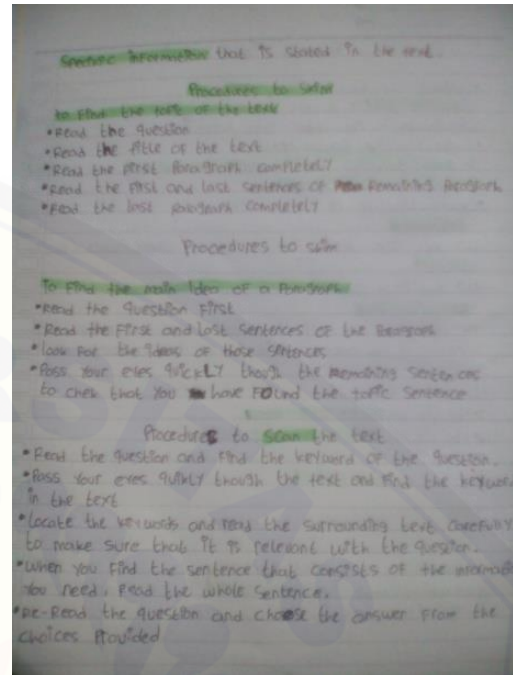 Specific information that is stated in the text.
Procedures to skim
to find the topic of the text
•Read the question
•Read the title of the text
•Read the first Paragraph completely
•Read the first and last sentences of Remaining Paragraph
•Read the last paragraph completely
Procedures to skim
To Find the main Idea of a Paragraph
•Read the question First
•Read the First and Last Sentences of the Paragraph
•look For the Ideas of those sentences
•Pass Your eyes quickLY though the remaining sentences
to chek that You have FOUnd the topic sentence
Procedures to scan the text
•Read the question and Find the keyword of the question.
•Pass Your eyes quikly though the text and Find the keyword
in the text
•Locate the keywords and read the surrounding text carefully
to make sure that it is relevant with the question.
•When you find the sentence that consists of the informati
You need, Read the whole sentence.
•Re-Read the question and choose the answer From the
choices Provided